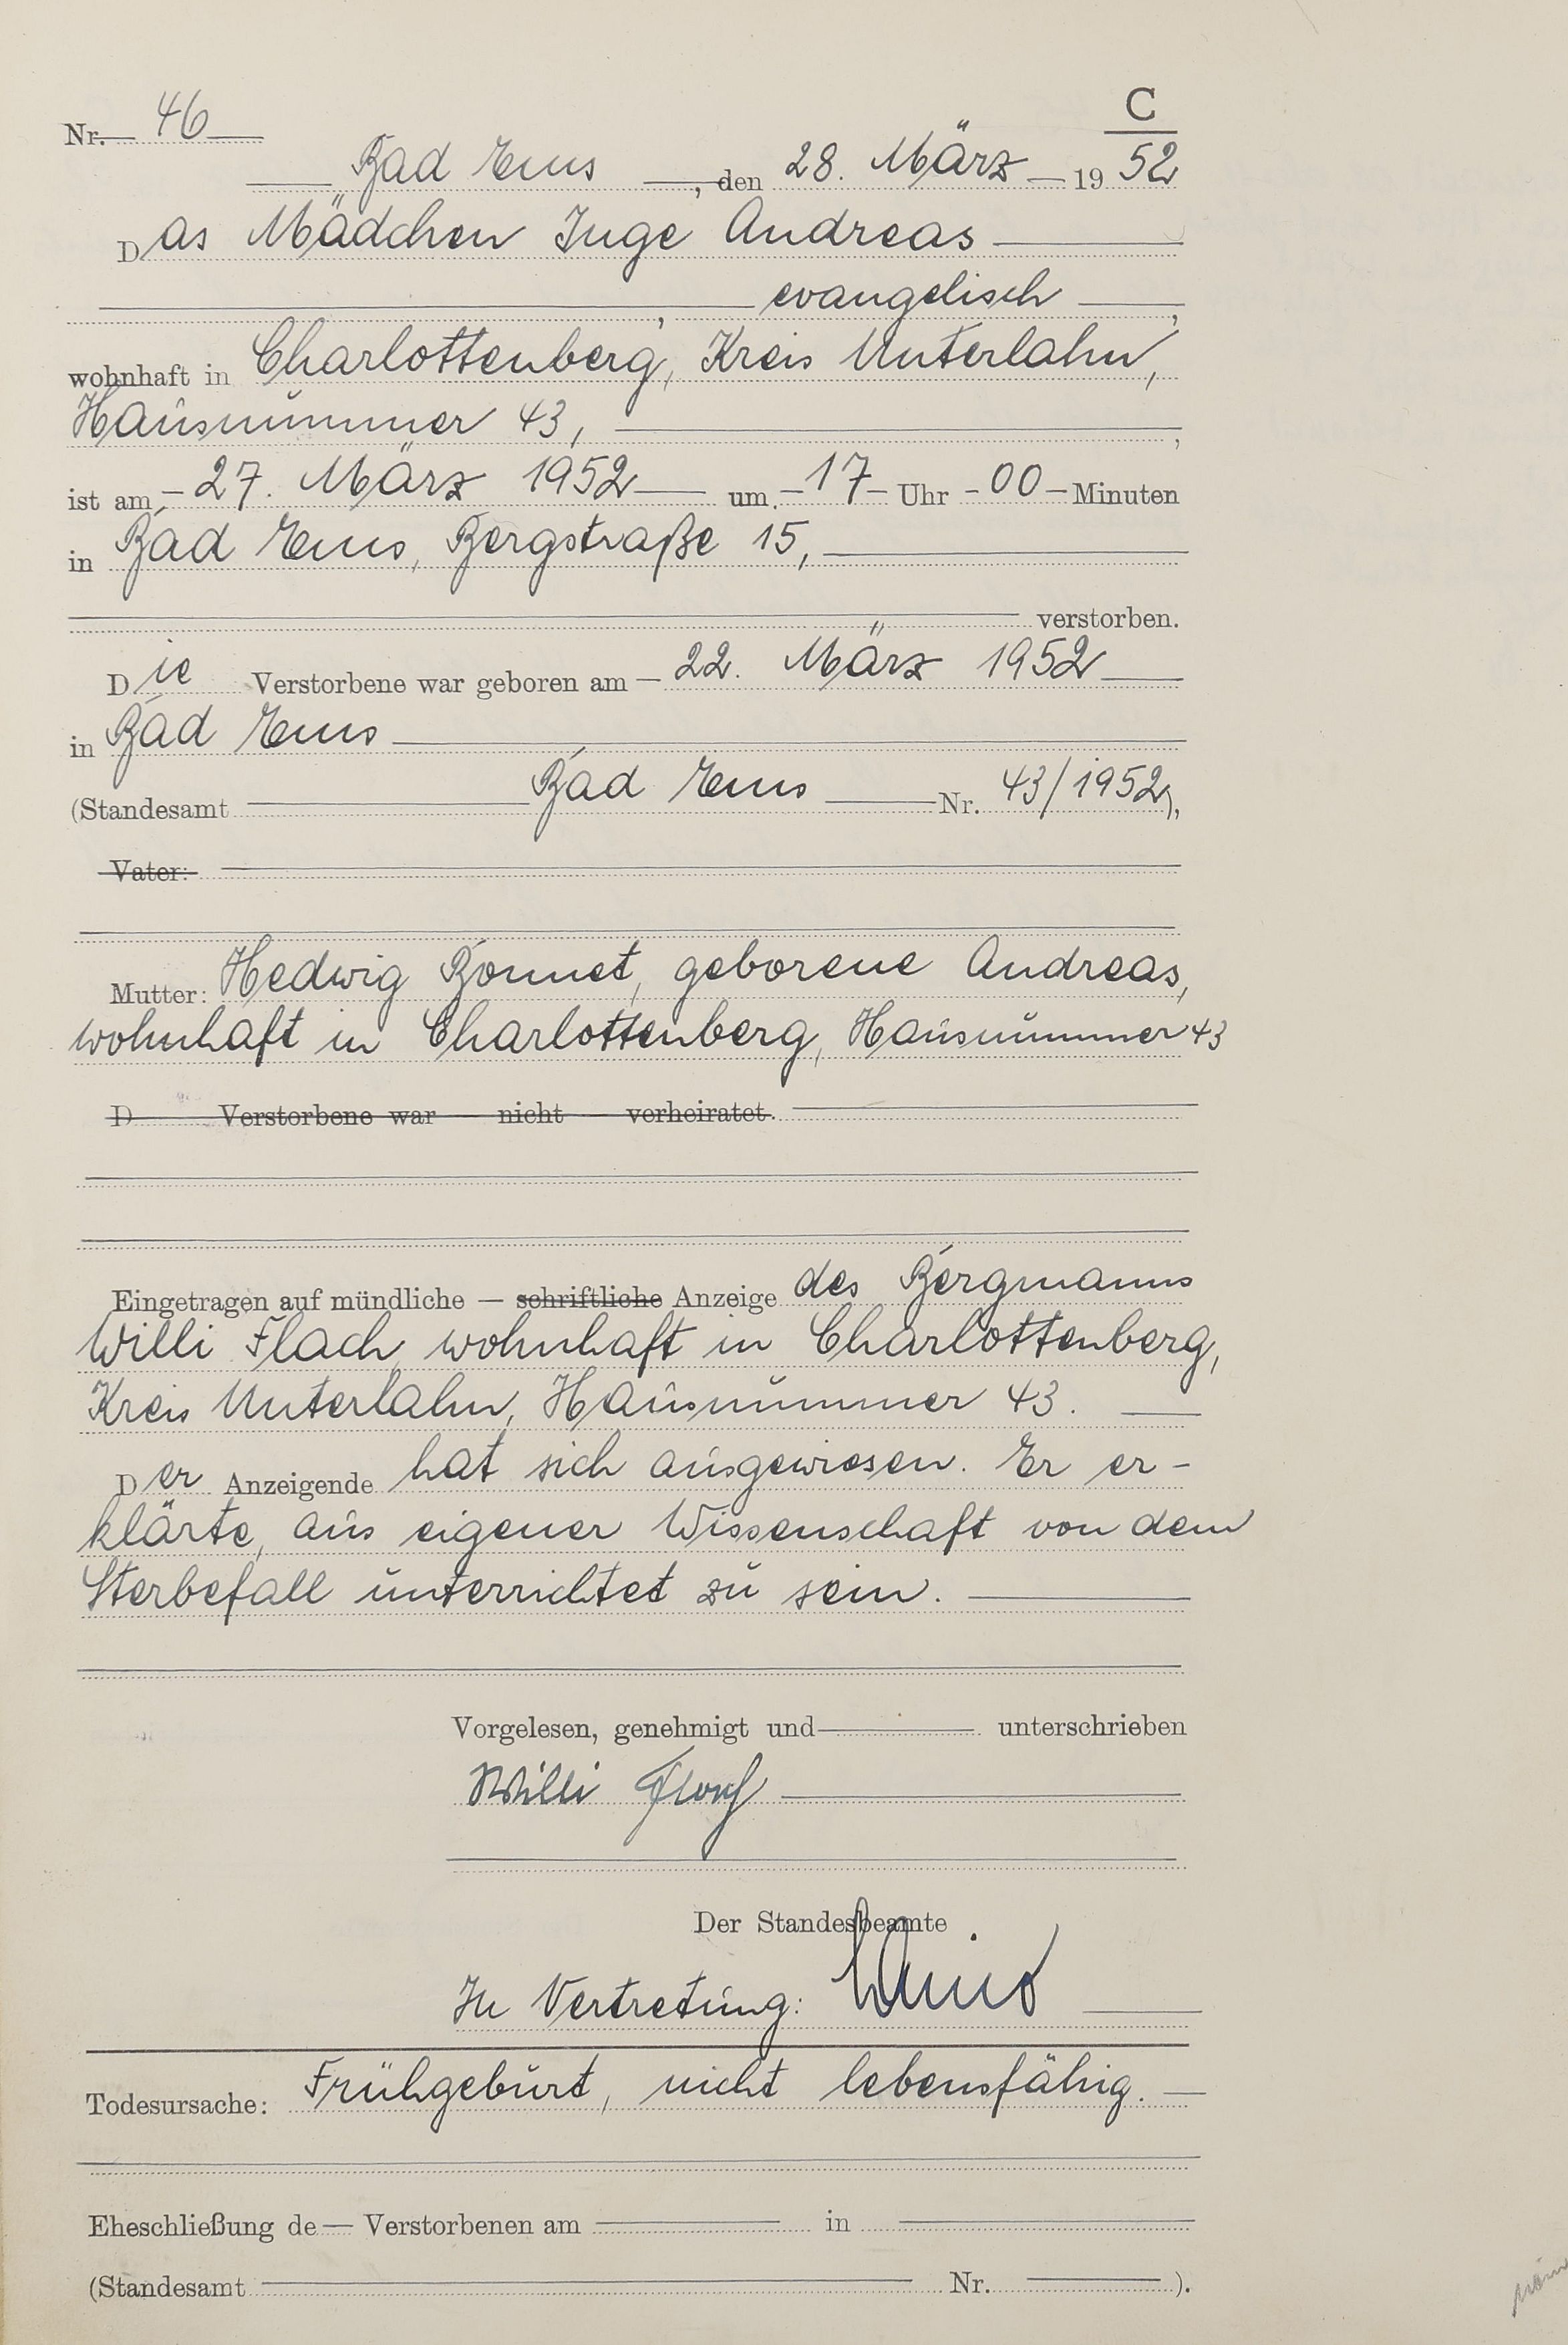 C
Nr. 46
Bad Ems, den 28. März 1952
Das Mädchen Inge Andreas
, evangelisch,
wohnhaft in Charlottenberg, Kreis Unterlahn,
Hausnummer 43, ,
ist am 27. März 1952 um 17 Uhr 00 Minuten
in Bad Ems, Bergstraße 15,
verstorben.
Die Verstorbene war geboren am 22. März 1952
in Bad Ems
(Standesamt Bad Ems Nr. 43/1952),
Vater:
Mutter: Hedwig Bonnet, geborene Andreas,
wohnhaft in Charlottenberg, Hausnummer 43
D Verstorbene war nicht verheiratet.
Eingetragen auf mündliche — schriftliche Anzeige des Bergmanns
Willi Flach, wohnhaft in Charlottenberg,
Kreis Unterlahn, Hausnummer 43.
Der Anzeigende hat sich ausgewiesen. Er er-
klärte, aus eigener Wissenschaft von dem
Sterbefall unterrichtet zu sein.
Vorgelesen, genehmigt und unterschrieben
Willi Flach
Der Standesbeamte
In Vertretung:
Todesursache: Frühgeburt, nicht lebensfähig.
Eheschließung de Verstorbenen am in
(Standesamt Nr. ).